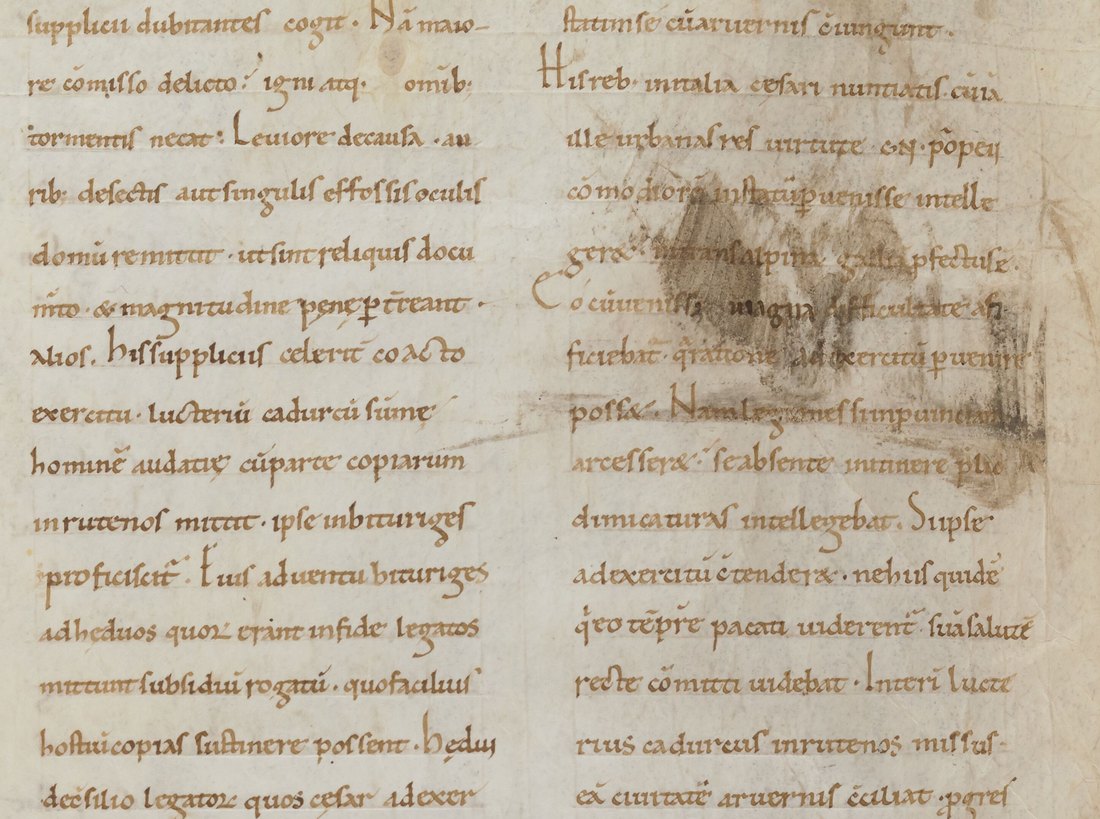 supplicii dubitantes cogit · Nā maio-
re cōmisso delicto · igni atq· omib·
tormentis necat · Leuiore decausa · au
rib· desectis aut singulis effossis oculis
domū remittit · ut sint reliquis docu
m̄to · & magnitudine penę ꝑt̄reant ·
alios. his suppliciis celerit̄ coacto
exercitu · lucteriū cadurcū sūmę
hominē audatię cū parte copiarum
in rutenos mittit · ipse inbituriges
proficiscit᷑ · Eius aduentu bituriges
ad hęduos quoꝝ erant infide legatos
mittunt subsidiū rogatū · quo facilius
hostiū copias sustinere possent · hędui
de c̄silio legatoꝝ quos cęsar ad exer
statim sé cū aruernis c̄iungunt ·
His reb· initalia cęsari nuntiatis · cū iā
ille urbanas res uirtute GN · pōpeii
cōmodiorē instatū ꝑuenisse intelle
ger& · intransalpinā galliā ꝓfectus ē ·
Eo cū uenisset magna difficultate affi
ficiebat᷑ · q̄ ratione ad exercitū ꝑuenire
poss& · Nam legiones si inꝓuinciam
arcesser& · se absente initinere p̄lio
dimicaturas intellegebat · Si ipse
ad exercitū c̄tender& · ne hiis quidē
q̇ eo tēpr̄e pacati uiderent᷑ · suā salutē
recte cōmitti uidebat · Interī lucte
rius cadurcus in rutenos missus ·
eā ciuitatē aruernis c̄ciliat · ꝓgres